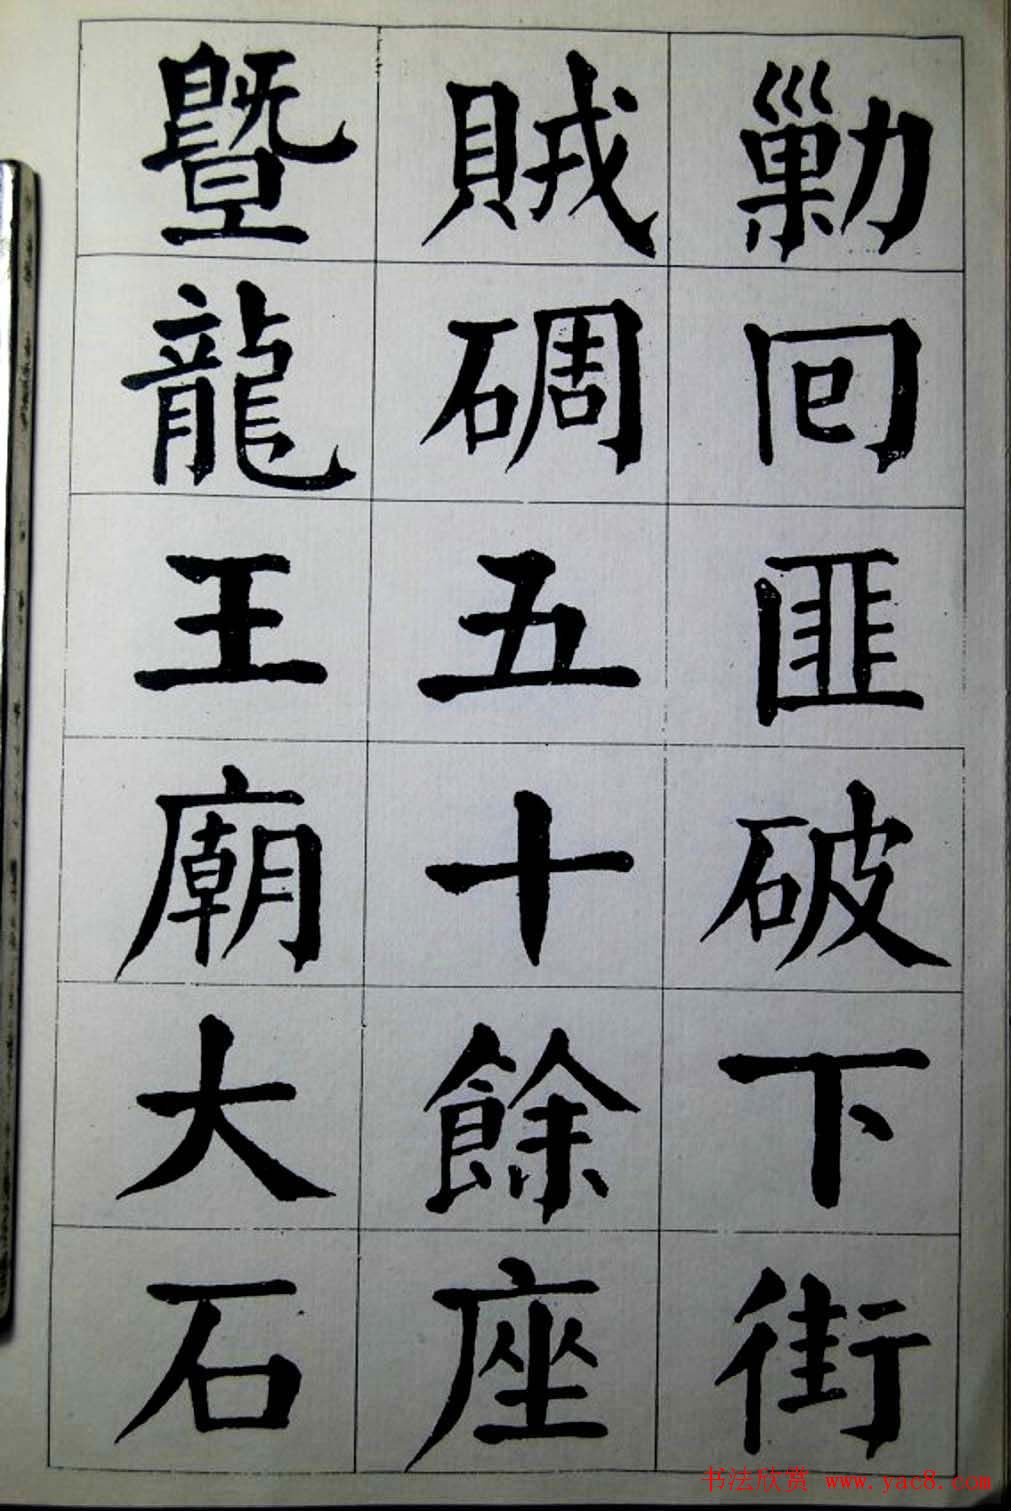 勦囘匪破下街
賊碉五十餘座
暨龍王廟大石
书法欣赏 www.yac8.com